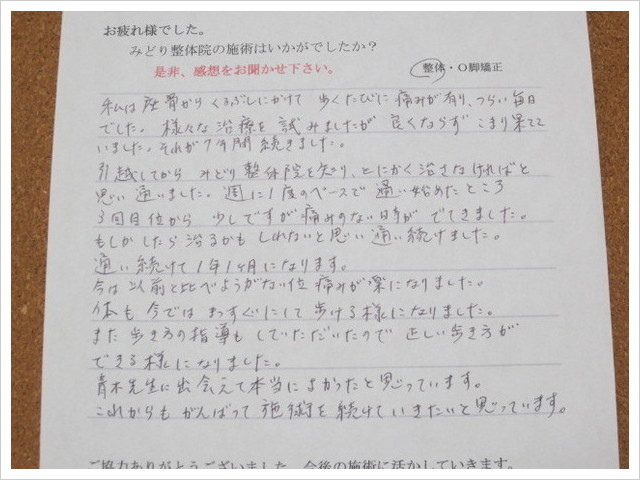 お疲れ様でした。
みどり整体院の施術はいかがでしたか?
是非、感想をお聞かせ下さい。
整体・O脚矯正
私は座骨からくるぶしにかけて 歩くたびに 痛みが有り、つらい毎日
でした。様々な治療を 試みましたが 良くならず こまり果てて
いました。それが7ヶ月間 続きました。
引越してから みどり整体院を知り、とにかく治さなければと
思い 通いました。週に1度のペースで 通い始めたところ
3回目位から 少しですが 痛みのない日々が でてきました。
もしかしたら 治るかも しれないと思い 通い続けました。
通い続けて 1年1ヶ月になります。
今は 以前と比べようがない位 痛みが楽になりました。
体も 今では まっすぐにして 歩ける様になりました。
また 歩き方の指導も していただいたので 正しい歩き方が
できる様になりました。
青木先生に出会えて本当によかったと思っています。
これからも がんばって 施術を 続けていきたいと思っています。
ご協力ありがとうございました。今後の施術に活かしていきます。